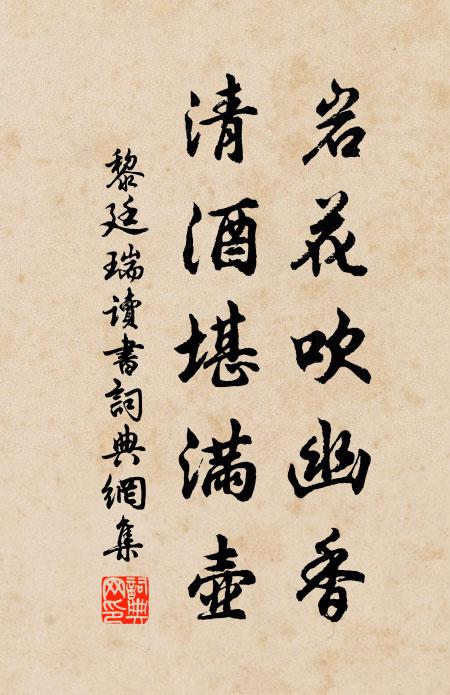 岩花吹幽香
清酒堪满壺
黎廷瑞讀書詞典網集
詞典